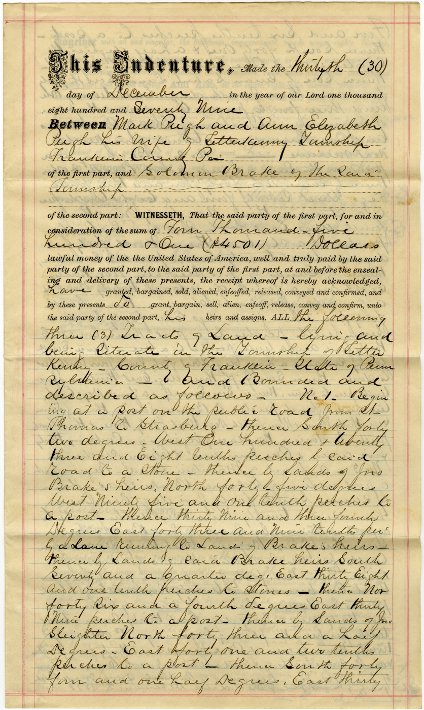 This Indenture, Made the thirtyth (30)
day of December in the year of our Lord one thousand
eight hundred and Seventy Nine
Between Mark Peigh and Ann Elizabeth
Peigh his Wife of Letterkenny Township
Franklin County Pa
of the first part, and Solomon Brake of the Said
Township
of the second part: WITNESSETH, That the said party of the first part, for and in
consideration of the sum of Four Thousand five
hundred & One ($4501) Dollars
lawful money of the the United States of America, well and truly paid by the said
party of the second part, to the said party of the first part, at and before the enseal-
ing and delivery of these presents, the receipt whereof is hereby acknowledged,
have granted, bargained, sold, aliened, enfeoffed, released, conveyed and confirmed, and
by these presents do grant, bargain, sell, alien, enfeoff, release, convey and confirm, unto
the said party of the second part, his heirs and assigns. ALL the following
three (3) Tracts of Land - lying and
being Situate in the Township of Letter
Kenny - County of Franklin - State of Penn
sylvania - and Bounded and
described as follows - No 1 - Begin
ing at a post on the public Road from St
Thomas to Strasburg - thence South forty
two degrees - West One hundred & twenty
three and Eight tenths perches to said
Road to a Stone - thence by Lands of Jno
Brake's heirs, North forty five degrees
West Ninety five and one tenth perches to
a post - thence thirty Nine and three fourths
Degrees East forty three and Nine tenths per
by a Lane Running to Land of Brake's heirs -
thence by Lands of said Brake heirs South
Seventy and a Quarter degs East thirty Eight
and one tenth perches to Stones - thence Nor
forty Six and a fourth degrees East thirty
Nine perches to a post - thence by Lands of Jno
Sleighter North forty three and a half
Degrees - East forty one and two tenths
perches to a post - thence South forty
four and one half Degrees, East thirty